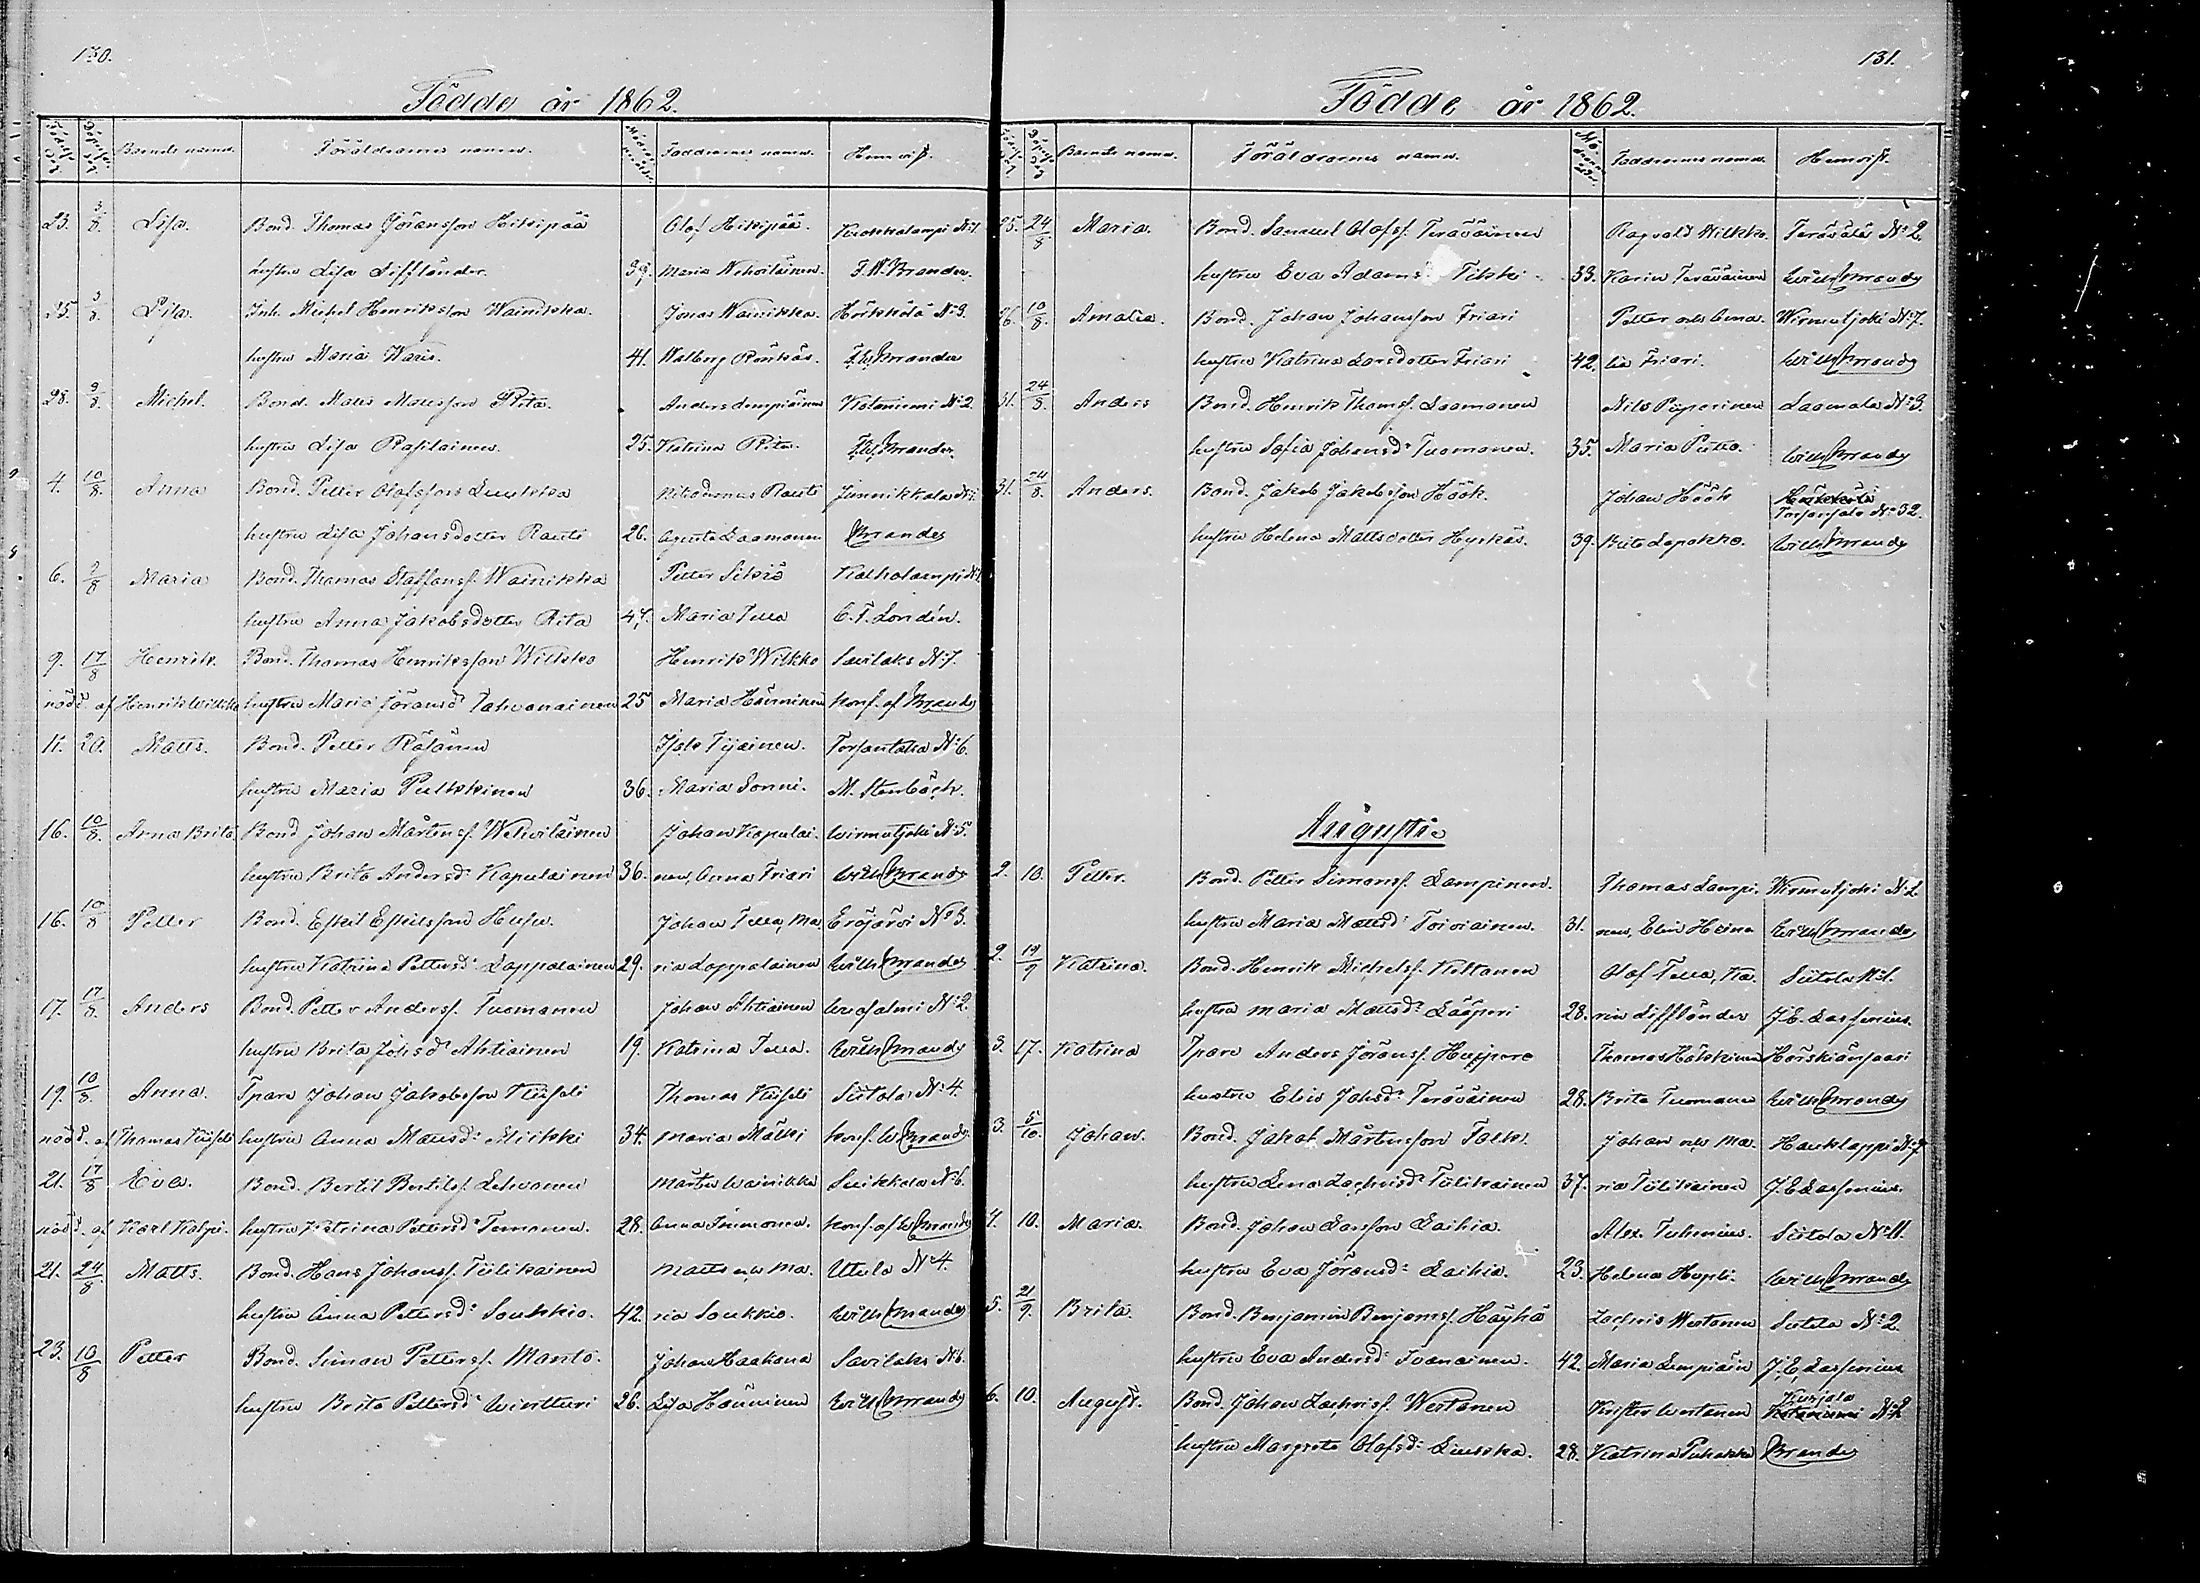 130.
Födde år 1862.
Födelse dag Döpelse dag Barnets namn. Föräldrarnes namn. Moderns ålder Faddrarnes namn. Hemvist.
23. 3/8. Lisa. Bond. Thomas Göransson Heikipää Olof Heikipää. Kuokkalampi N:1.
hustru Lisa Liffländer. 39. Maria Wehviläinen. F. W. Brander.
25. 3/8. Lisa. Inh. Michel Henriksson Wainikka. Jonas Wainikka. Härkkölä N:3.
hustru Maria Waris. 41. Walborg Rönkäs. F. W. Brander
28. 3/8. Michel. Bond. Matts Mattsson Rita. Anders Lempiäinen Kataniemi N:2.
hustru Lisa Rasilainen. 25. Katrina Rita. F. W. Brander.
4. 10/8. Anna Bond. Petter Olofsson Luukka Nikodemus Rauti Junnikkala N:1.
hustru Lisa Johansdotter Rauti 26. Agneta Laamanen Brander
6. 2/8 Maria Bond. Thomas Staffanss. Wainikka Petter Sikiö Kalholampi N:1
hustru Anna Jakobsdotter Rita 47. Maria Tella C. F. Londén.
9. 17/8 Henrik. Bond. Thomas Henriksson Wilkko Henrik Wilkko Savilaks N:7.
nödd. af Henrik Wilkko hustru Maria Göransd: Tahvanainen 25 Maria Hänninen konf. af Brander
11. 20. Matts. Bond. Petter Räsänen Isak Tijainen. Torsantaka N:6.
hustru Maria Pulkkinen 36. Maria Sonni. M. Stenbäck.
16. 10/8. Anna Brita Bond Johan Mårtenss. Wehviläinen Johan Kapulai- Wirmutjoki N:5.
hustru Brita Andersd: Kapulainen 36. nen, Anna Friari Wilh Brander
16. 10/8 Petter Bond. Eskil Eskilsson Husu. Johan Tella, Ma- Eräjärvi N:3.
hustru Katrina Pettersd: Lappalainen 29. ria Lappalainen Wilh Brander
17. 17/8. Anders Bond. Petter Anderss. Tuomanen Johan Ahtiainen Uresalmi N:2.
hustru Brita Johsd: Ahtiainen 19. Katrina Tella. Wilh Brander
19. 10/8. Anna. Tpare Johan Jakobsson Kiiseli Thomas Kiiseli Siitola N:4.
nödd. af Thomas Kiiseli hustru Anna Mattsd: Miikki 34. Maria Mälki konf. W Brander
21. 17/8 Eva. Bond. Bertil Bertilss. Lehvanen Mårten Wainikka Suikkala N:6.
nödd. af Karl Kalpi. hustru Katrina Pettersd: Temanen. 28. Anna Immonen. konf. af W Brander
21. 24/8 Matts. Bond. Hans Johanss. Tiilikainen Matts och Ma- Utula N:4.
hustru Anna Pettersd: Soukkio. 42. ria Soukkio. Wilh Brander
23. 10/8 Petter Bond. Simon Petterss. Manto. Johan Haakana Savilaks N:6.
hustru Brita Pettersd: Winttari 26. Lisa Hänninen Wilh Brander
131.
Födde år 1862.
Födelse dag Döpelse dag Barnets namn. Föräldrarnes namn. Moderns ålder. Faddrarnes namn. Hemvist.
25. 24/8 Maria. Bond. Samuel Olofss. Teräväinen Ragvald Wilkko. Terävälä N:2.
hustru Eva Adams Tikki 33. Karin Teräväinen Wilh Brander
26. 10/8. Amalia. Bond. Johan Johansson Friari Petter och Ama- Wirmutjoki N:7.
hustru Katrina Larsdotter Friari 42. lia Friari. Wilh Brander
31. 24/8. Anders Bond. Henrik Thomss. Laamanen Nils Piiparinen Laamala N:3.
hustru Sofia Johansd: Tuomanen. 35. Maria Putto. Wilh Brander
31. 24/8. Anders. Bond. Jakob Jakobsson Höök. Johan Höök Torsansalo N:32.
hustru Helena Mattsdotter Hyrkäs. 39. Brita Lapakko. Wilh Brander
Augusti.
2. 10. Petter. Bond. Petter Simonss. Lampinen. Thomas Lampi- Wirmutjoki N:2
hustru Maria Mattsd: Toiviainen. 31. nen, Elin Heina Wilh Brander
2. 19/9 Katrina. Bond. Henrik Michelss. Kekkonen Olof Tella, Ka- Siitola N:1.
hustru Maria Mattsd: Lääperi 28. rin Liffländer J. E. Lassenius.
3. 17. Katrina Tpare Anders Jöranss. Huppare Thomas Hälikkinen Härskiänsaari
hustru Elin Johsd: Teräväinen 28. Brita Tuomanen Wilh Brander
3. 5/10. Johan. Bond. Jakob Mårtensson Talk. Johan och Ma- Hauklappi N:7
hustru Lena Zachrisd: Tiilikainen 37. ria Tiilikainen J. E. Lassenius.
4. 10. Maria. Bond. Johan Larsson Laikia. Alex. Tuhenius. Siitola N:11.
hustru Eva Jöransd: Laikia. 23. Helena Hupli. Wilh Brander
5. 21/9. Brita. Bond. Benjamin Benjamss. Häyhä Zachris Wertanen Siitola N:2.
hustru Eva Andersd: Ivanainen. 42. Maria Lempiäin J. E. Lassenius
6. 10. August. Bond. Johan Zachriss. Wertanen Krister Wertanen Kurjola N:2
hustru Margreta Olofsd: Luukka. 28. Katrina Puhakka Brander